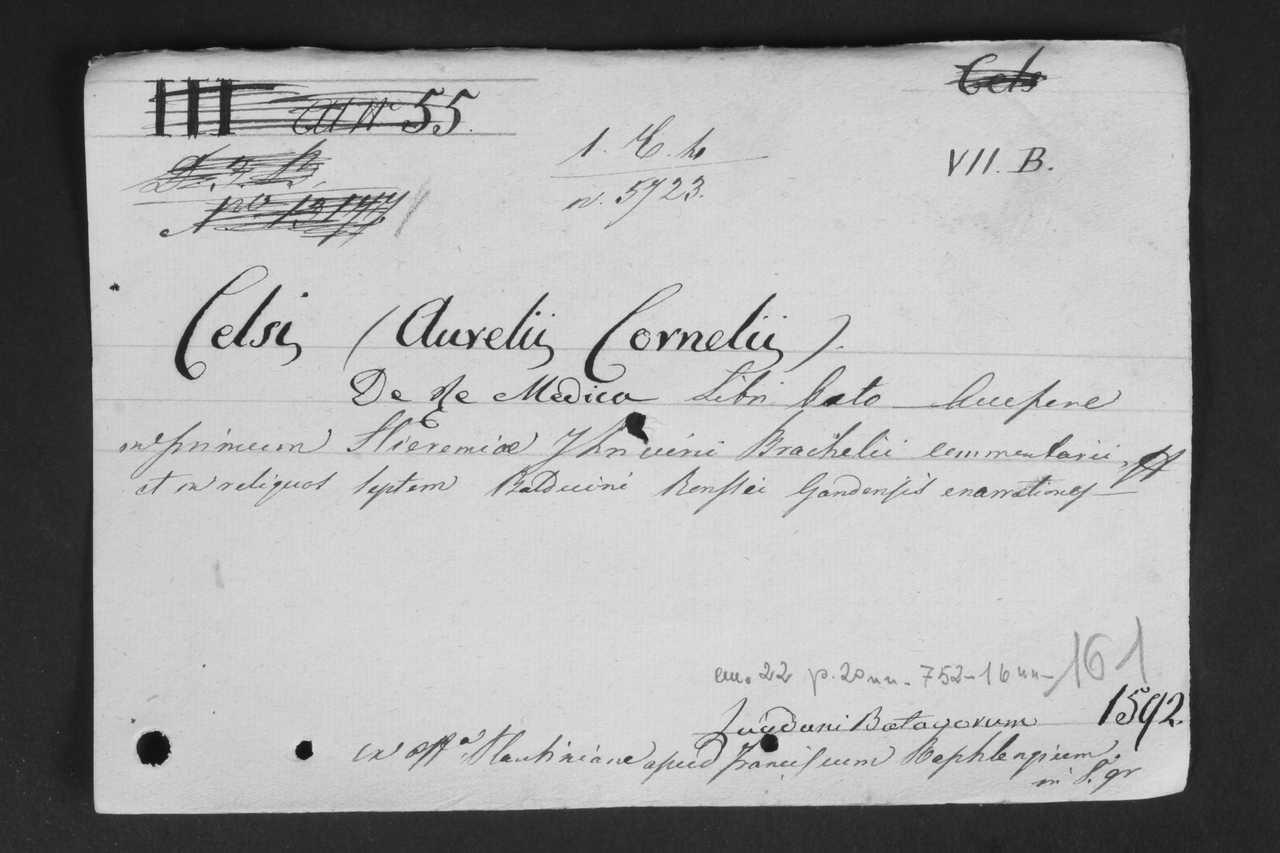 III 55.
Cels
VII. B.
n. 5723.
Celsi, (Aurelii, Cornelii,).
De Re Medica Libri Octo Accessere
in primum Hieremiæ Thriveri Brachelii commentarii,
et in reliquos septem Balduini Ronssei Gandensis enarrationes
cm. 22 p. 20 nn. 752-16 nn- 161
Lugduni Batavorum 1592.
ex offa. Plantiniana apud Franciscum Raphlengium
in 8. gr